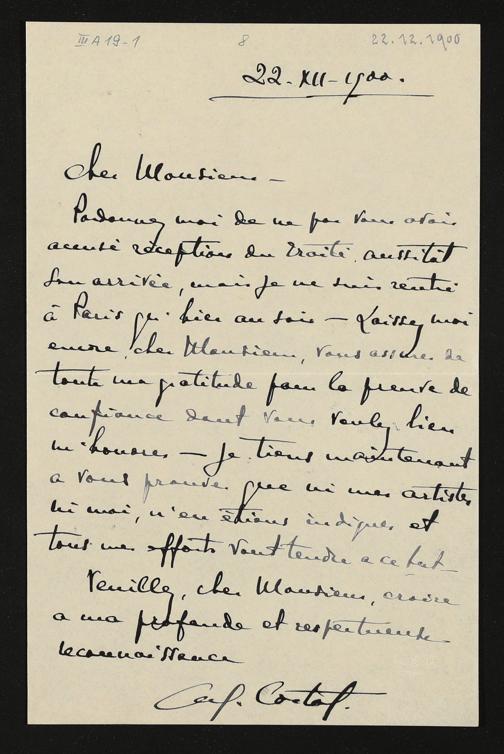 III A 19-1 8 22.12.1900
22-XII-1900.
Cher Monsieur –
Pardonnez moi de ne pas vous avoir
accusé réception du traité, aussitôt
son arrivée, mais je ne suis rentré
à Paris qu'hier au soir – Laissez moi
encore, cher Monsieur, vous assurer de
toute ma gratitude pour la preuve de
confiance dont vous voulez bien
m'honorer – Je tiens maintenant
a vous prouver que ni mes artistes
ni moi, n'en étions indignes et
tous mes efforts vont tendre a ce but
Veuillez, cher Monsieur, croire
a ma profonde et respectueuse
reconnaissance
Alf. Cortot.